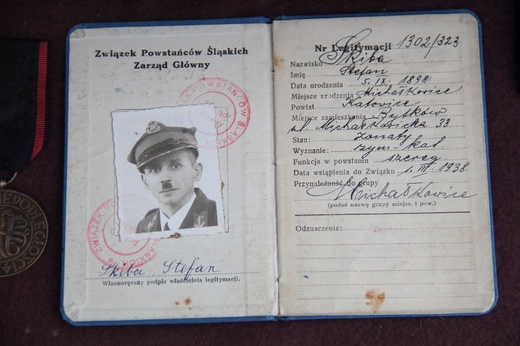 Związek Powstańców Śląskich
Zarząd Główny
ZWIĄZEK POWSTAŃCÓW ŚLĄSKICH
Skiba Stefan
Własnoręczny podpis właściciela legitymacji.
Nr Legitymacji 1302/323
Nazwisko Skiba
Imię Stefan
Data urodzenia 5. IX. 1898
Miejsce urodzenia Michałkowice
Powiat Katowice
Miejsce zamieszkania Bytków
ul. Michałkowicka 33
Stan: żonaty
Wyznanie: rzym. kat
Funkcja w powstaniu szereg
Data wstąpienia do Związku 1. III. 1938
Przynależność do grupy
Michałkowice
(podać nazwę grupy miejsc. i pow.)
Odznaczenia: